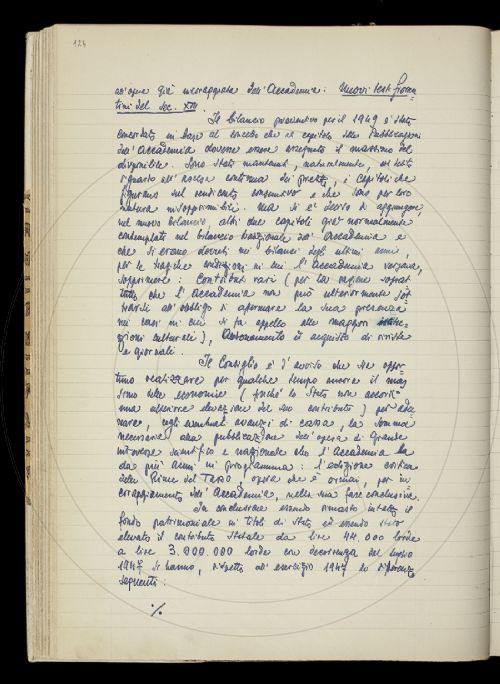 124
all'opera già incoraggiata dall'Accademia: Nuovi testi fioren=
tini del sec. XIII.
Il bilancio preventivo per il 1949 è stato
concordato in base al concetto che al capitolo delle Pubblicazioni
dell'Accademia dovesse essere assegnato il massimo del
disponibile. Sono stati mantenuti, naturalmente,
riguardo all'ascesa continua dei prezzi, i capitoli che
figurano nel rendiconto consuntivo e che sono per loro
natura insopprimibili. Ma si è deciso di aggiungere,
nel nuovo bilancio, altri due capitoli già normalmente
contemplati nel bilancio tradizionale dell'Accademia e
che si erano dovuti nei bilanci degli ultimi anni,
per le tragiche condizioni in cui l'Accademia versava,
sopprimere: Contributi vari (per la ragione soprat=
tutto che l'Accademia non può ulteriormente sot=
trarsi all'obbligo di affermare la sua presenza
nei casi in cui si fa appello alle maggiori istitu=
zioni culturali), Abbonamento e acquisto di riviste
e giornali.
Il Consiglio è d'avviso che sia oppor=
tuno realizzare per qualche tempo ancora il mas=
simo delle economie (finché lo Stato non accordi
una ulteriore elevazione del suo contributo) per ade=
nare, cogli eventuali avanzi di cassa, la somma
necessaria alla pubblicazione dell'opera di grande
interesse scientifico e nazionale che l'Accademia ha
da più anni in programma: l'edizione critica
delle Rime del Tasso, opera che è ormai, per in=
coraggiamento dell'Accademia, nella sua fase conclusiva.
In conclusione essendo rimasto intatto il
fondo patrimoniale in titoli di Stato ed essendo stato
elevato il contributo statale da lire 44.000 lorde
a lire 3.000.000 lorde con decorrenza dal luglio
1947 si hanno, rispetto all'esercizio 1947 le differenze
seguenti:
./.